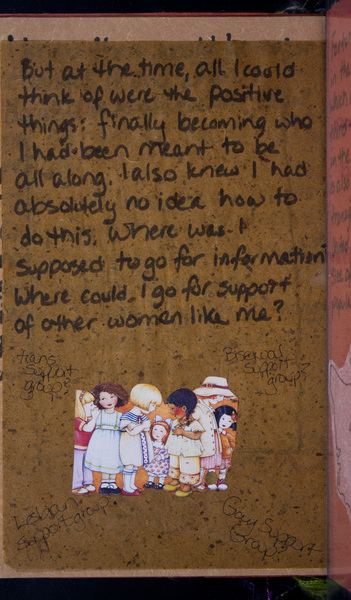 But at the time, all I could
think of were the positive
things: finally becoming who
I had been meant to be
all along. I also knew I had
absolutely no idea how to
do this. Where was I
supposed to go for information?
Where could I go for support
of other women like me?
trans
support
group?
Bisexual
support
group?
Lesbian
support group?
Gay Support
Group?